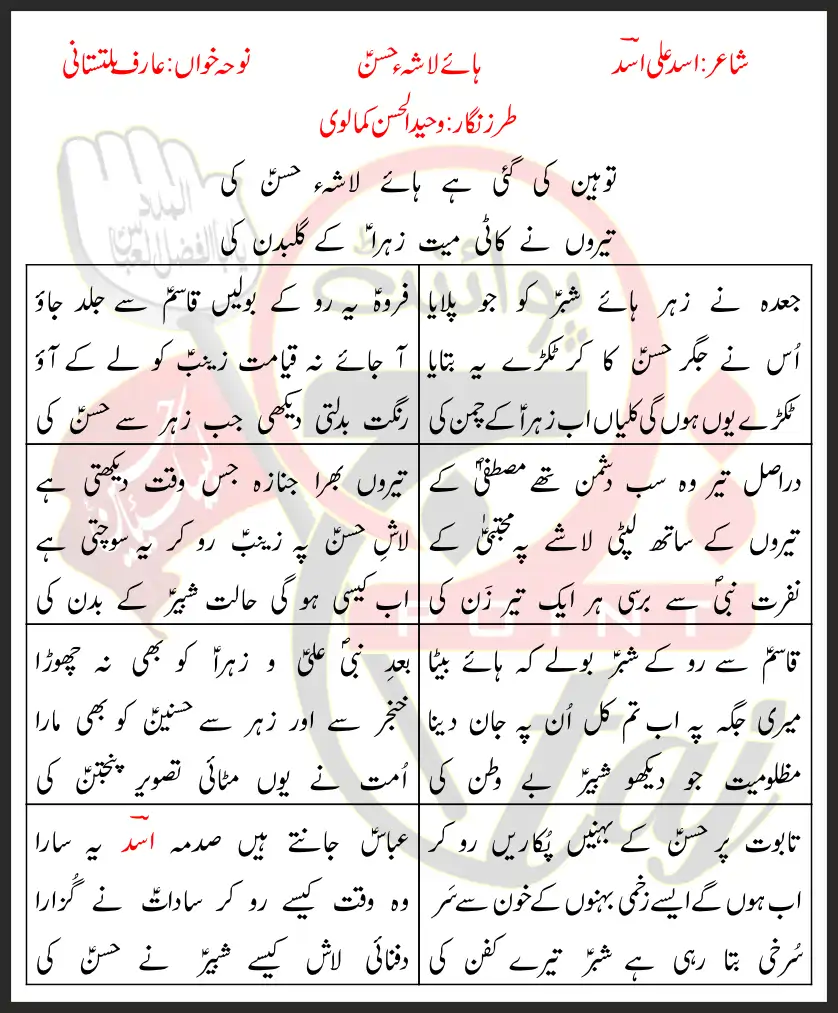 شاعر: اسد علی اسدؔ
ہائے لاشہء حسنؑ
نوحہ خواں: عارف بلتستانی
طرز نگار: وحید الحسن کمالوی
توہین کی گئی ہے ہائے لاشہء حسنؑ کی
تیروں نے کاٹی میت زہراؑ کے گلبدن کی
جعدہ نے زہر ہائے شبرؑ کو جو پلایا
اُس نے جگر حسنؑ کا کر ٹکڑے یہ بتایا
ٹکڑے یوں ہوں گی کلیاں اب زہراؑ کے چمن کی
فروہؑ یہ رو کے بولیں قاسمؑ سے جلد جاؤ
آ جائے نہ قیامت زینبؑ کو لے کے آؤ
رنگت بدلتی دیکھی جب زہر سے حسنؑ کی
دراصل تیر وہ سب دشمن تھے مصطفیؐ کے
تیروں کے ساتھ لپٹی لاشے پہ مجتبیٰؑ کے
نفرت نبیؐ سے برسی ہر ایک تیر زَن کی
تیروں بھرا جنازہ جس وقت دیکھتی ہے
لاشِ حسنؑ پہ زینبؑ رو کر یہ سوچتی ہے
اب کیسی ہو گی حالت شبیرؑ کے بدن کی
قاسمؑ سے رو کے شبرؑ بولے کہ ہائے بیٹا
میری جگہ پہ اب تم کل اُن پہ جان دینا
مظلومیت جو دیکھو شبیرؑ بے وطن کی
بعدِ نبیؐ علیؑ و زہراؑ کو بھی نہ چھوڑا
خنجر سے اور زہر سے حسنینؑ کو بھی مارا
اُمت نے یوں مٹائی تصویر پنجتنؑ کی
تابوت پر حسنؑ کے بہنیں پُکاریں رو کر
اب ہوں گے ایسے زخمی بہنوں کے خون سے سَر
سُرخی بتا رہی ہے شبرؑ تیرے کفن کی
عباسؑ جانتے ہیں صدمہ اسدؔ یہ سارا
وہ وقت کیسے رو کر ساداتؑ نے گُزارا
دفنائی لاش کیسے شبیرؑ نے حسنؑ کی
المدد
یا ابا الفضل العباسؑ
پوائنٹ
POINT
Taj